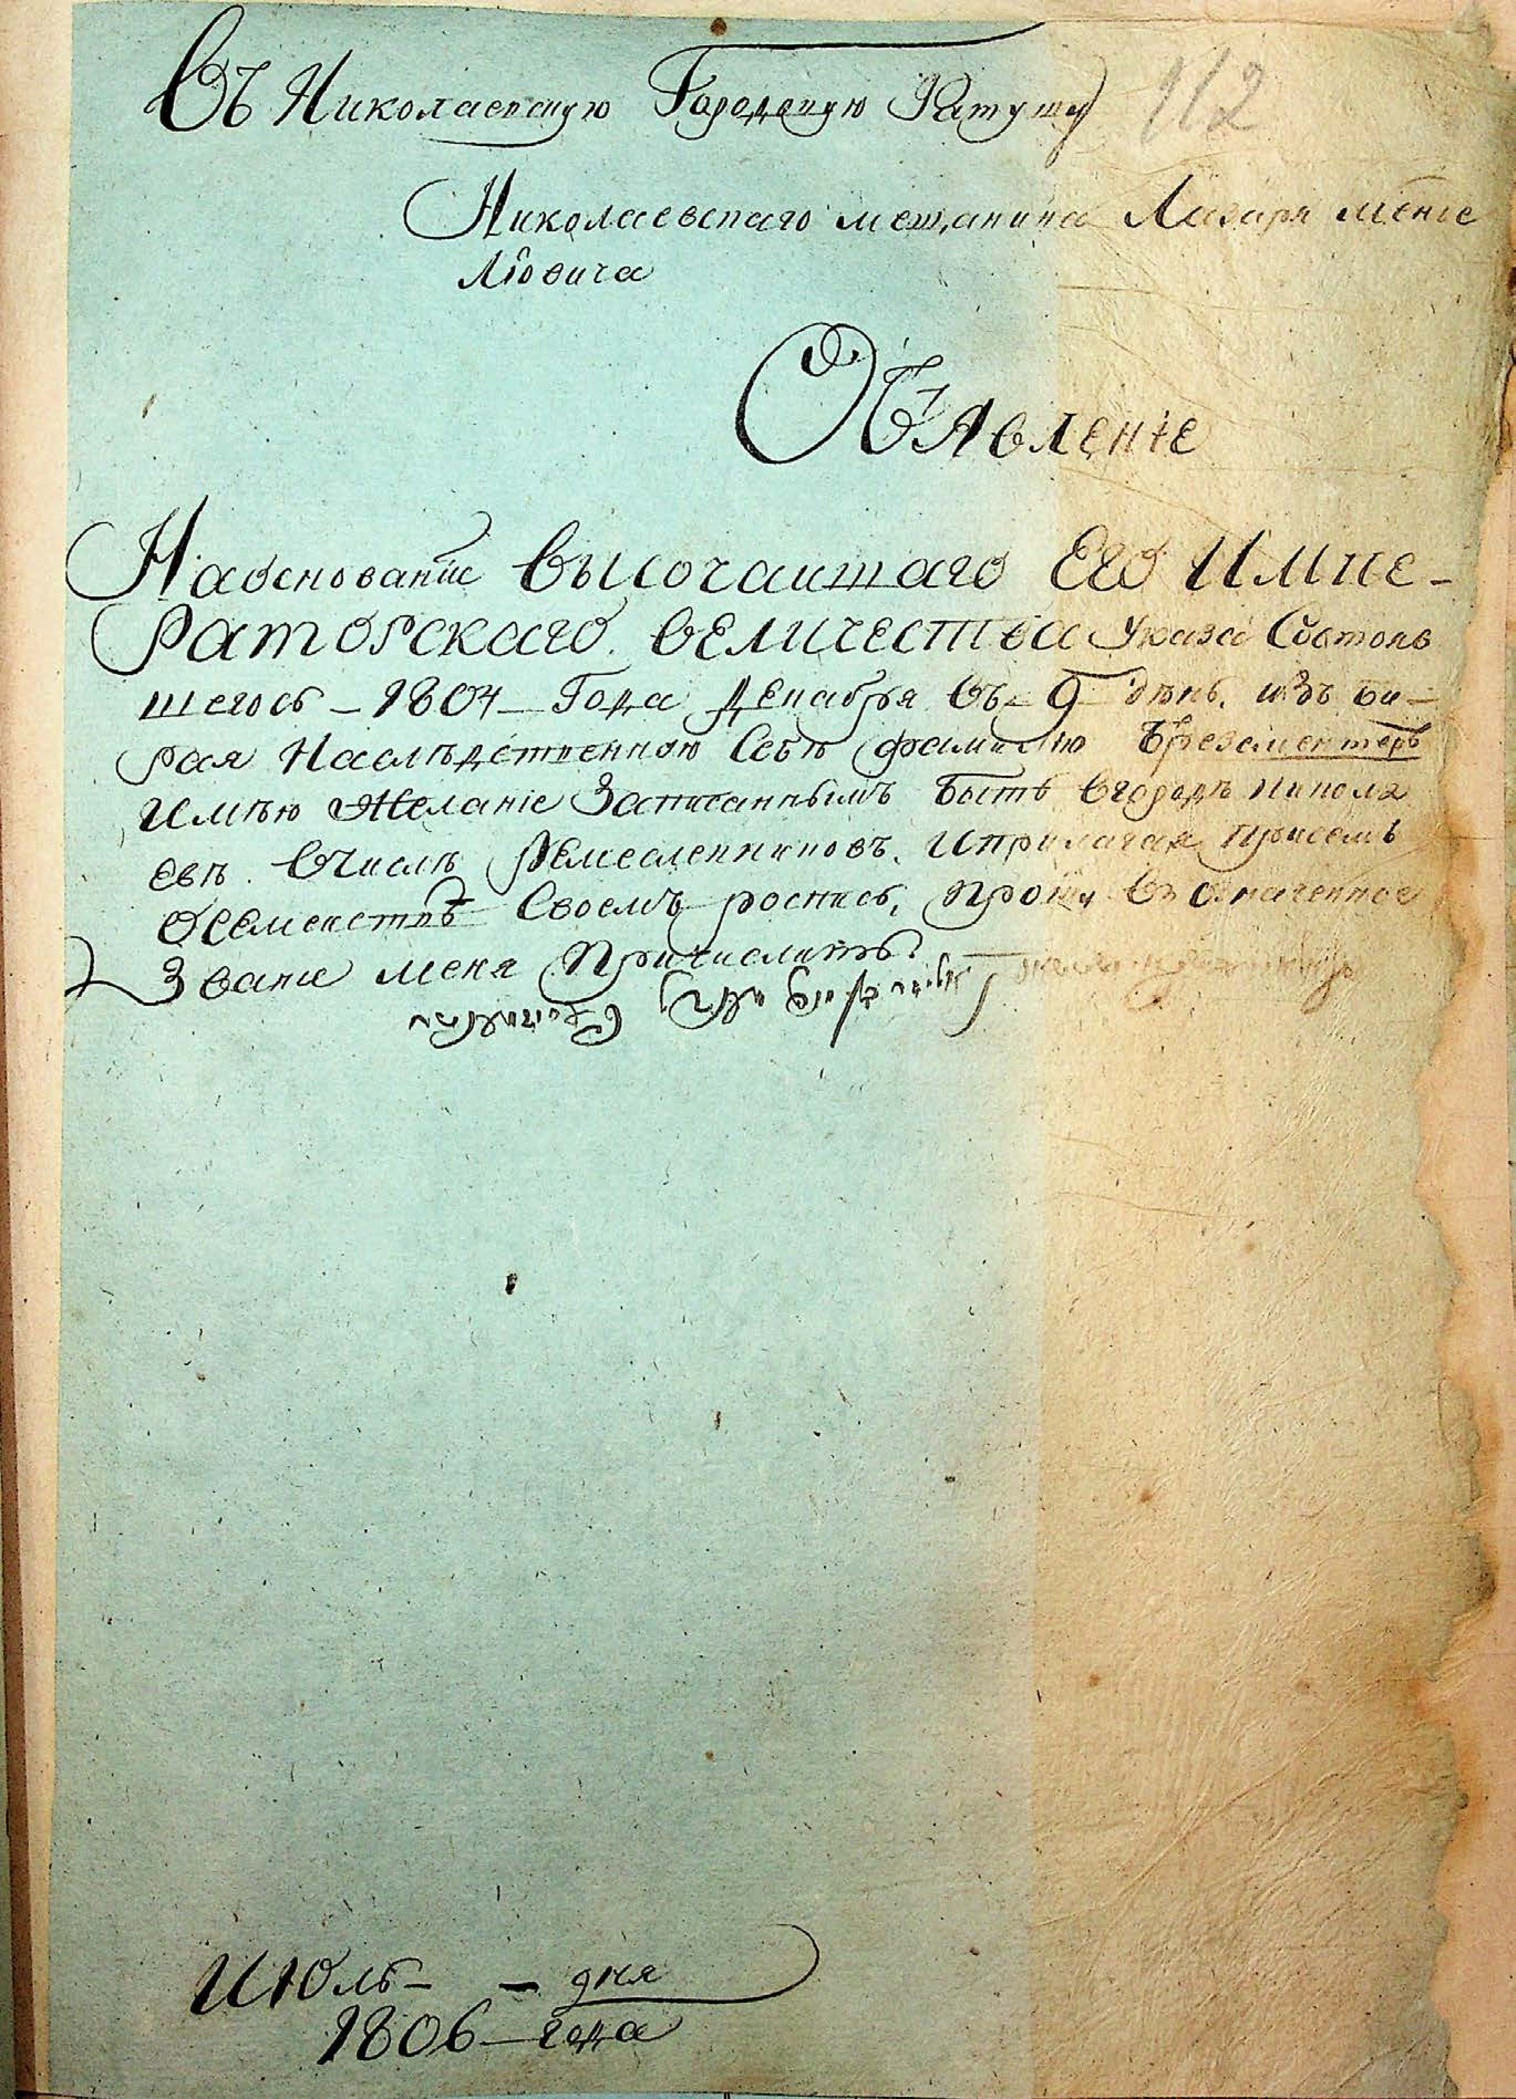 Въ Николаевскую Городскую Ратушу
112
Николаевскаго мещанина Лазаря
Лiовича
Объявленiе
На основанiе высочаишаго Его Импе-
раторскаго величества Указа Состояв
шегось - 1804 - Года Декабря въ - 9 день, изъ би-
рая Наслѣдственную Себѣ фамилiю Брезементеръ
Имѣю Желанiе Записаннымъ Быть вгородѣ Никола
евѣ вЧислѣ Ремесленниковъ, Иприлагая Присемъ
оСеменствѣ Своемъ роспись, прошу въ означенное
Званiе меня Причислить.
Июль - - дня
1806 - года